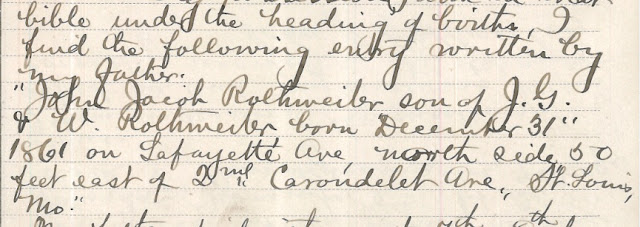 bible under the heading of births, I
find the following entry written by
my father.
"John Jacob Rothweiler son of J.G.
& W. Rothweiler born December 31"
1861 on Lafayette Ave, north side, 50
feet east of 2nd Carondelet Ave., St. Louis,
Mo."